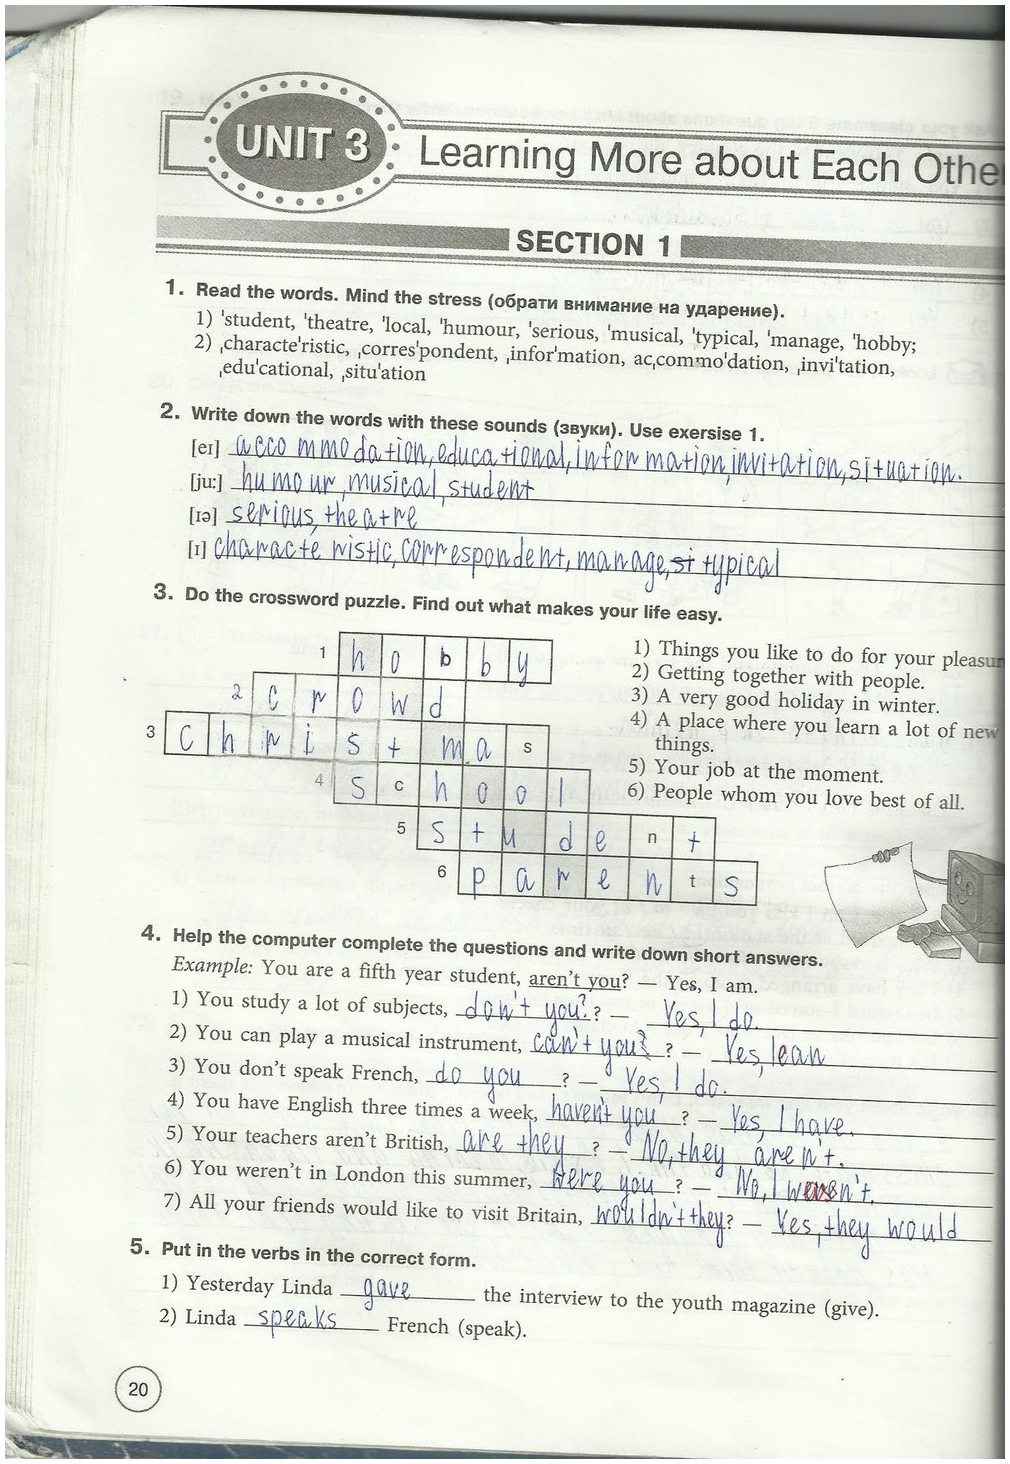 UNIT 3
Learning More about Each Othe
SECTION 1
1. Read the words. Mind the stress (обрати внимание на ударение).
1) 'student, 'theatre, 'local, 'humour, 'serious, 'musical, 'typical, 'manage, 'hobby;
2) ˌcharacte'ristic, ˌcorres'pondent, ˌinfor'mation, acˌcommo'dation, ˌinvi'tation,
ˌedu'cational, ˌsitu'ation
2. Write down the words with these sounds (звуки). Use exersise 1.
[eɪ] accommodation, educational, information, invitation, situation.
[ju:] humour, musical, student
[ɪə] serious, theatre
[ɪ] characteristic, correspondent, manage, si typical
3. Do the crossword puzzle. Find out what makes your life easy.
1 h o b b y
2 c r o w d
3 c h r i s t m a s
4 s c h o o l
5 s t u d e n t
6 p a r e n t s
1) Things you like to do for your pleasur
2) Getting together with people.
3) A very good holiday in winter.
4) A place where you learn a lot of new
things.
5) Your job at the moment.
6) People whom you love best of all.
4. Help the computer complete the questions and write down short answers.
Example: You are a fifth year student, aren't you? — Yes, I am.
1) You study a lot of subjects, don't you? ? — Yes, I do.
2) You can play a musical instrument, can't you? ? — Yes, I can
3) You don't speak French, do you ? — Yes, I do.
4) You have English three times a week, haven't you ? — Yes, I have.
5) Your teachers aren't British, are they ? — No, they aren't.
6) You weren't in London this summer, were you ? — No, I wasn't.
7) All your friends would like to visit Britain, wouldn't they? — Yes, they would
5. Put in the verbs in the correct form.
1) Yesterday Linda gave the interview to the youth magazine (give).
2) Linda speaks French (speak).
20